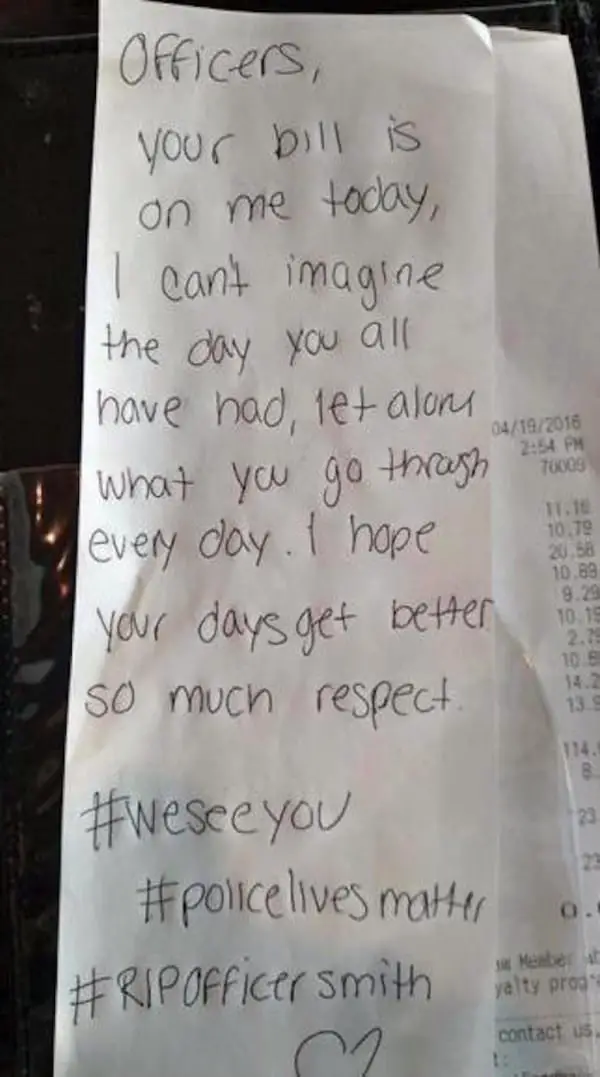 Officers,
your bill is
on me today,
I can't imagine
the day you all
have had, let alone
what you go through
every day. I hope
your days get better
so much respect.
#weseeyou
#policelivesmatter
#RIPOfficersmith
04/19/2016
2:54 PM
70009
11.16
10.79
20.58
10.89
9.29
10.19
2.79
14.2
13.9
114.
8.
23
23
0.
Member
contact us.